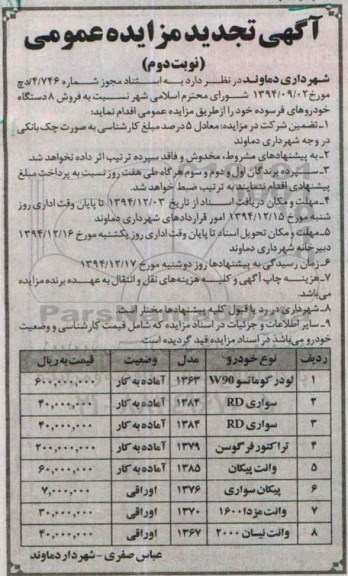 آگهی تجدید مزایده عمومی
(نوبت دوم)
شهرداری دماوند در نظر دارد به استناد مجوز شماره ۴/۷۴۶/دج
مورخ ۱۳۹۴/۰۹/۰۲ شورای محترم اسلامی شهر نسبت به فروش ۸ دستگاه
خودروهای فرسوده خود را از طریق مزایده عمومی اقدام نماید:
۱ـ تضمین شرکت در مزایده: معادل ۵ درصد مبلغ کارشناسی به صورت چک بانکی
در وجه شهرداری دماوند
۲ـ به پیشنهادهای مشروط، مخدوش و فاقد سپرده ترتیب اثر داده نخواهد شد.
۳ـ سپرده برندگان اول و دوم و سوم هرگاه طی هفت روز نسبت به پرداخت مبلغ
پیشنهادی اقدام ننمایند به ترتیب ضبط خواهد شد.
۴ـ مهلت و مکان دریافت اسناد از تاریخ ۱۳۹۴/۱۲/۰۳ تا پایان وقت اداری روز
شنبه مورخ ۱۳۹۴/۱۲/۱۵ امور قراردادهای شهرداری دماوند
۵ـ مهلت و مکان تحویل اسناد تا پایان وقت اداری روز یکشنبه مورخ ۱۳۹۴/۱۲/۱۶
دبیرخانه شهرداری دماوند
۶ـ زمان رسیدگی به پیشنهادها روز دوشنبه مورخ ۱۳۹۴/۱۲/۱۷
۷ـ هزینه چاپ آگهی و کلیه هزینه‌های نقل و انتقال به عهده برنده مزایده
می‌باشد.
۸ـ شهرداری در رد یا قبول کلیه پیشنهادها مختار است.
۹ـ سایر اطلاعات و جزئیات در اسناد مزایده که شامل قیمت کارشناسی و وضعیت
خودرو می‌باشد در اسناد مزایده قید گردیده است.
ردیف نوع خودرو مدل وضعیت قیمت به ریال
۱ لودر کوماتسو W90 ۱۳۶۳ آماده به کار ۶۰۰,۰۰۰,۰۰۰
۲ سواری RD ۱۳۸۴ آماده به کار ۴۰,۰۰۰,۰۰۰
۳ سواری RD ۱۳۸۴ آماده به کار ۴۰,۰۰۰,۰۰۰
۴ تراکتور فرگوسن ۱۳۷۹ آماده به کار ۲۰۰,۰۰۰,۰۰۰
۵ وانت پیکان ۱۳۸۵ آماده به کار ۶۰,۰۰۰,۰۰۰
۶ پیکان سواری ۱۳۷۶ اوراقی ۷,۰۰۰,۰۰۰
۷ وانت مزدا ۱۶۰۰ ۱۳۷۰ اوراقی ۳۰,۰۰۰,۰۰۰
۸ وانت نیسان ۲۰۰۰ ۱۳۶۷ اوراقی ۴۰,۰۰۰,۰۰۰
عباس صفری - شهردار دماوند